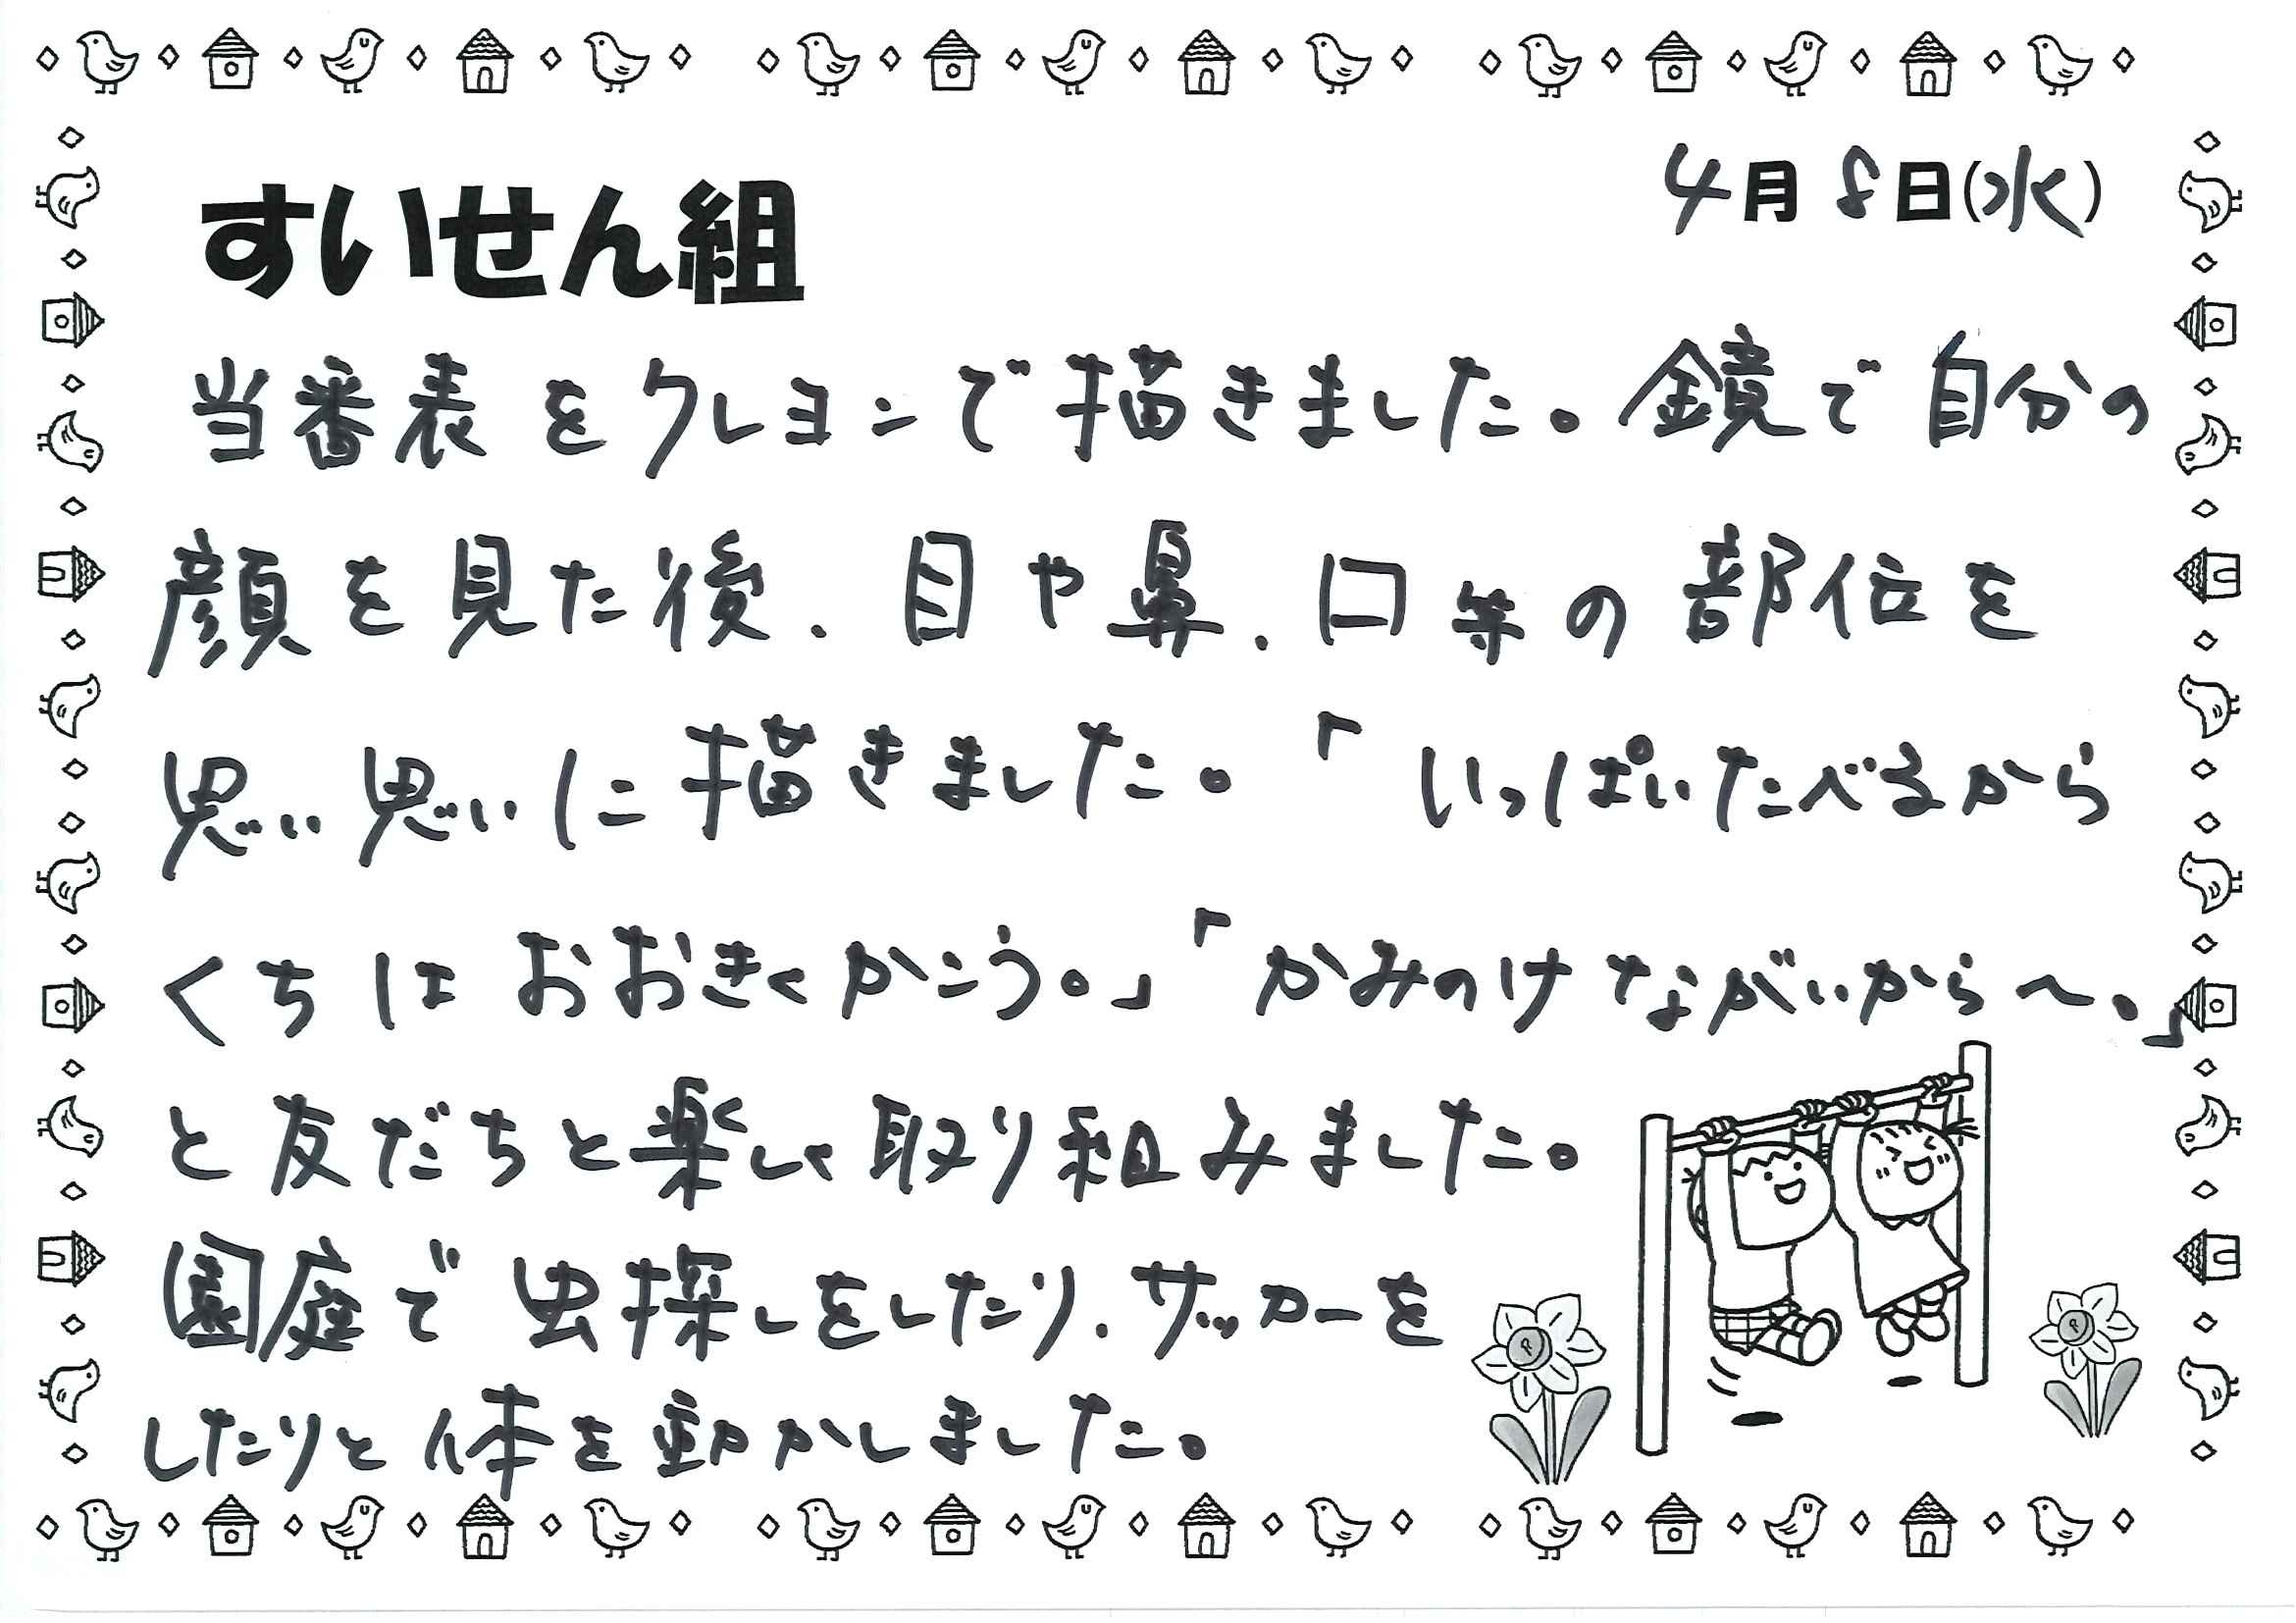 4月8日(水)
すいせん組
当番表をクレヨンで描きました。鏡で自分の
顔を見た後、目や鼻、口等の部位を
思い思いに描きました。「いっぱいたべるから
くちはおおきくかこう。」「かみのけながいから〜。」
と友だちと楽しく取り組みました。
園庭で虫探しをしたり、サッカーを
したりと体を動かしました。